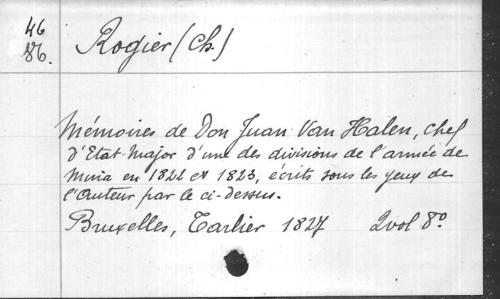 46
86.
Rogier (Ch.)
Mémoires de Don Juan Van Halen, chef
d'Etat-Major d'une des divisions de l'armée de
Mina en 1822 et 1823, écrits sous les yeux de
l'Auteur par le ci-dessus.
Bruxelles, Tarlier 1827 2 vol 8º.